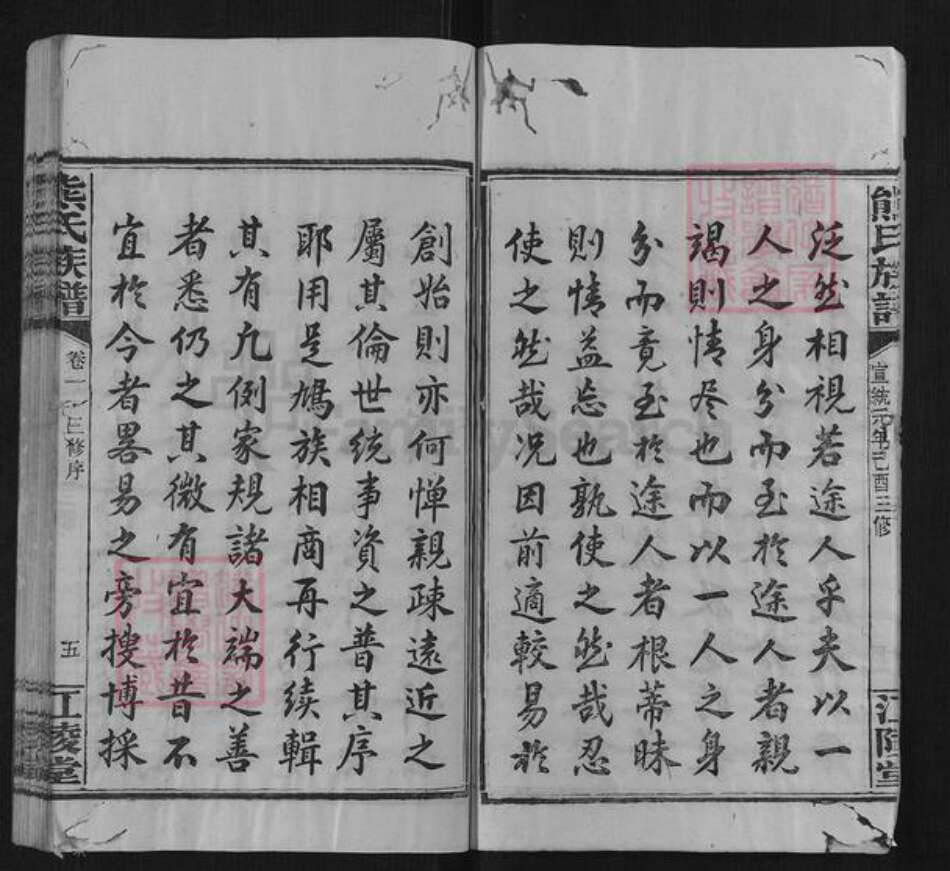 熊氏族譜
宣統元年己酉三修
江陵堂
泛然相視若途人乎夫以一
人之身分而至於途人者親
竭則情尽也而以一人之身
分而竟至於途人者根蒂昧
則情益忘也孰使之然哉忍
使之然哉况因前適較易於
創始則亦何憚親疎遠近之
屬其倫世統事資之普其序
耶用是鳩族相商再行续輯
其有凢例家規諸大端之善
者悉仍之其微有宜於昔不
宜於今者畧易之旁搜博採
熊氏族譜
卷一
三修序
五
江陵堂